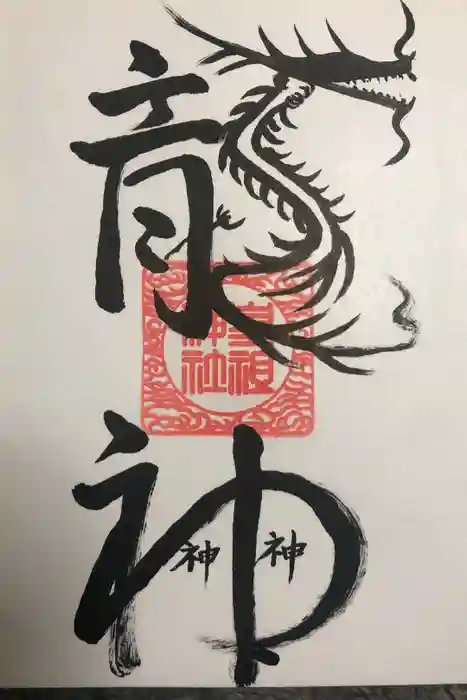 龍
祖
神社
神
神 神